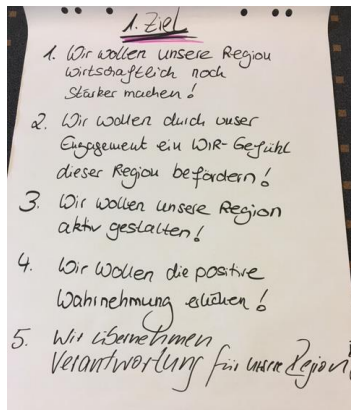 1. Ziel
1. Wir wollen unsere Region
wirtschaftlich noch
stärker machen!
2. Wir wollen durch unser
Engagement ein WIR-Gefühl
dieser Region befördern!
3. Wir wollen unsere Region
aktiv gestalten!
4. Wir wollen die positive
Wahrnehmung erhöhen!
5. Wir übernehmen
Verantwortung für unsere Region!